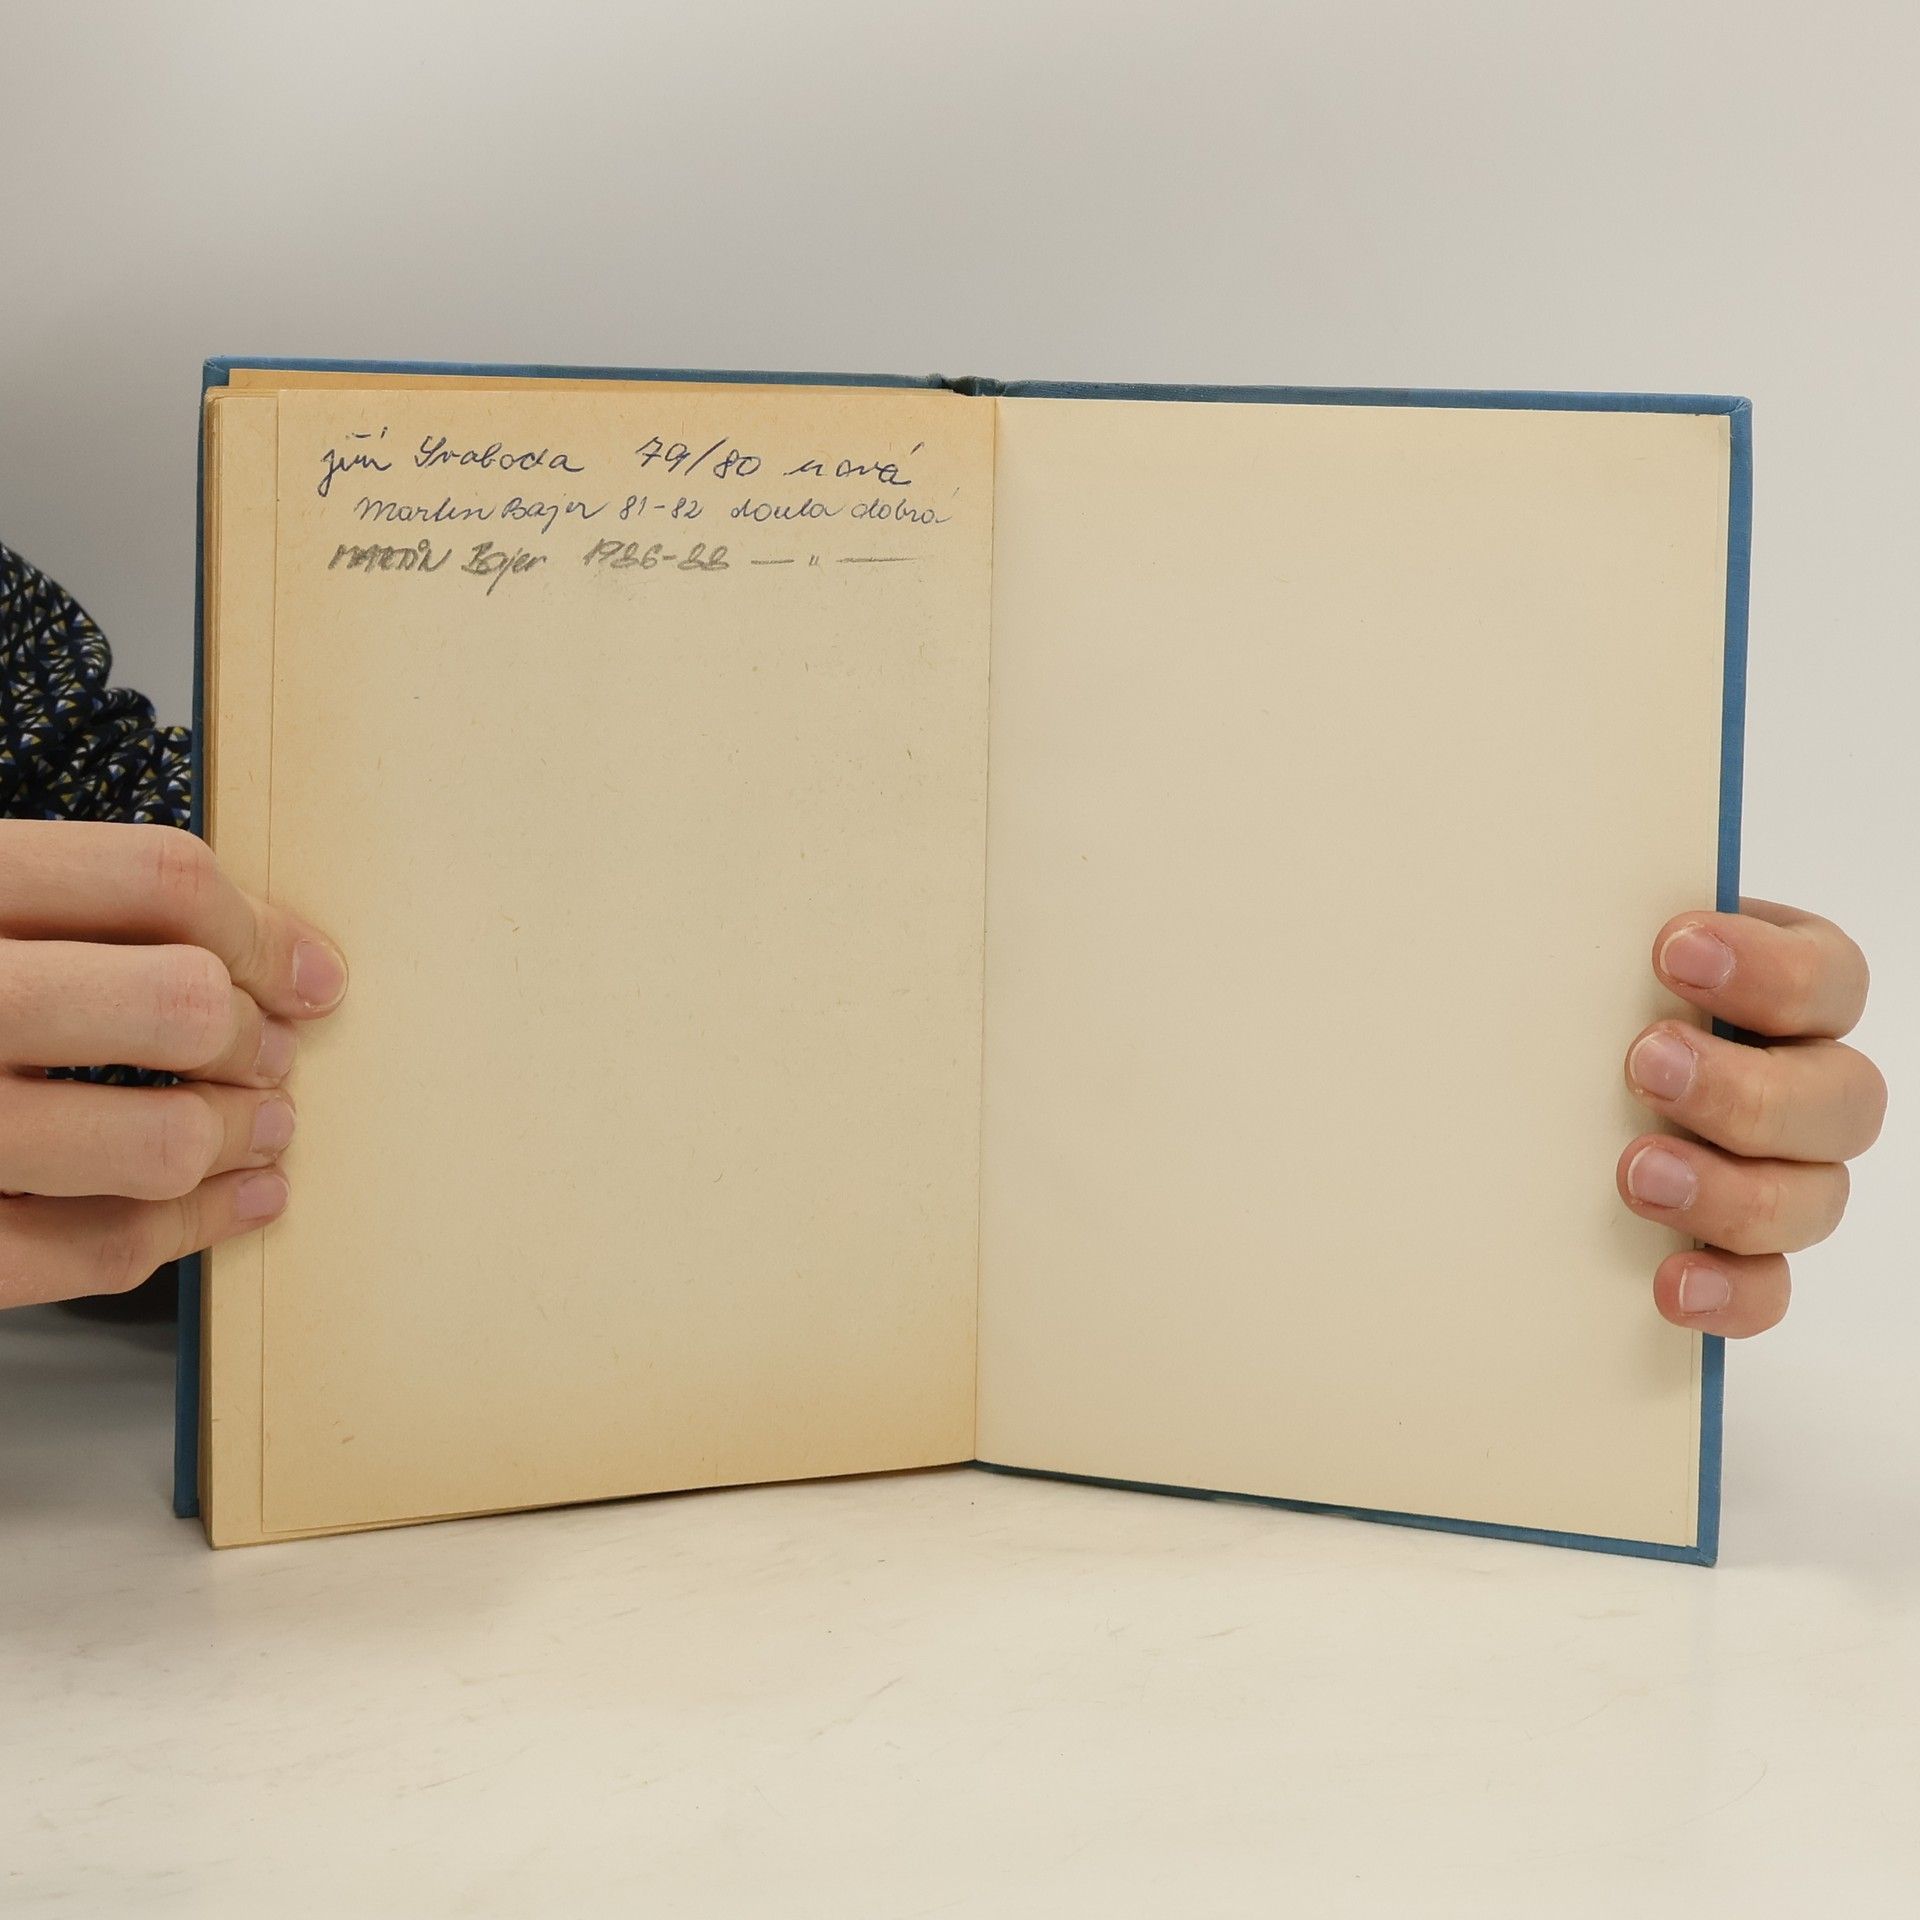 Jiří Svoboda 79/80 nová
Martin Bajer 81-82 docela dobrá
MARTIN Bajer 1986-88 — " —